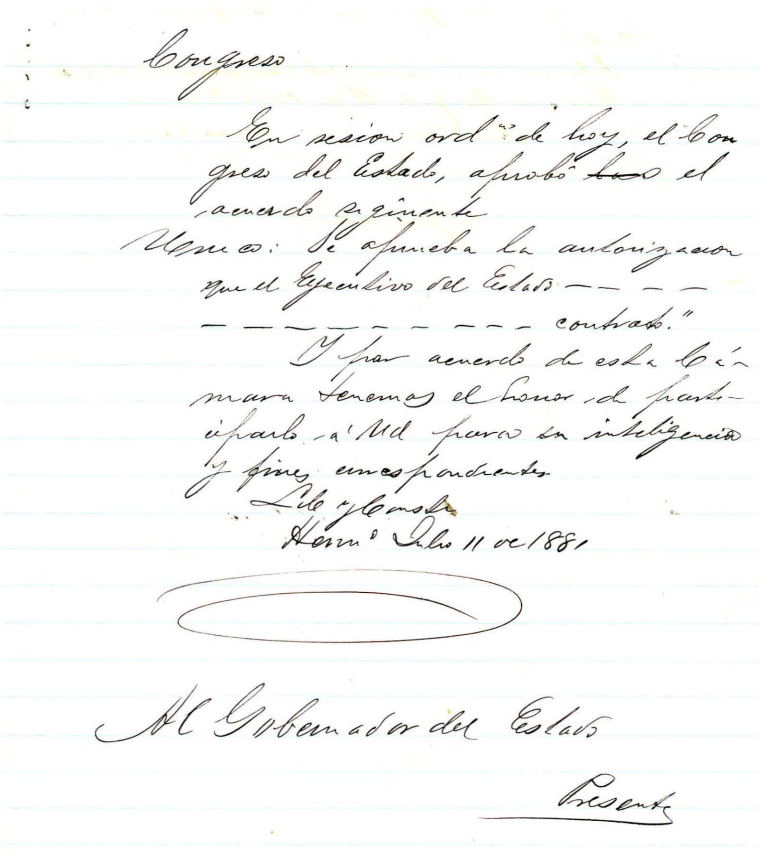 Congreso
En sesion ord.ª de hoy, el Con
greso del Estado, aprobó el
acuerdo siginente
Unico: Se aprueba la autorizacion
que el Ejecutivo del Estado — — — —
— — — — — — — — — — contrato."
Y por acuerdo de esta Cá-
mara tenemos el honor de parti-
ciparlo á Ud para su inteligencia
y fines correspondientes
Lib y Const.
Herm.º Julio 11 de 1881
Al Gobernador del Estado
Presente